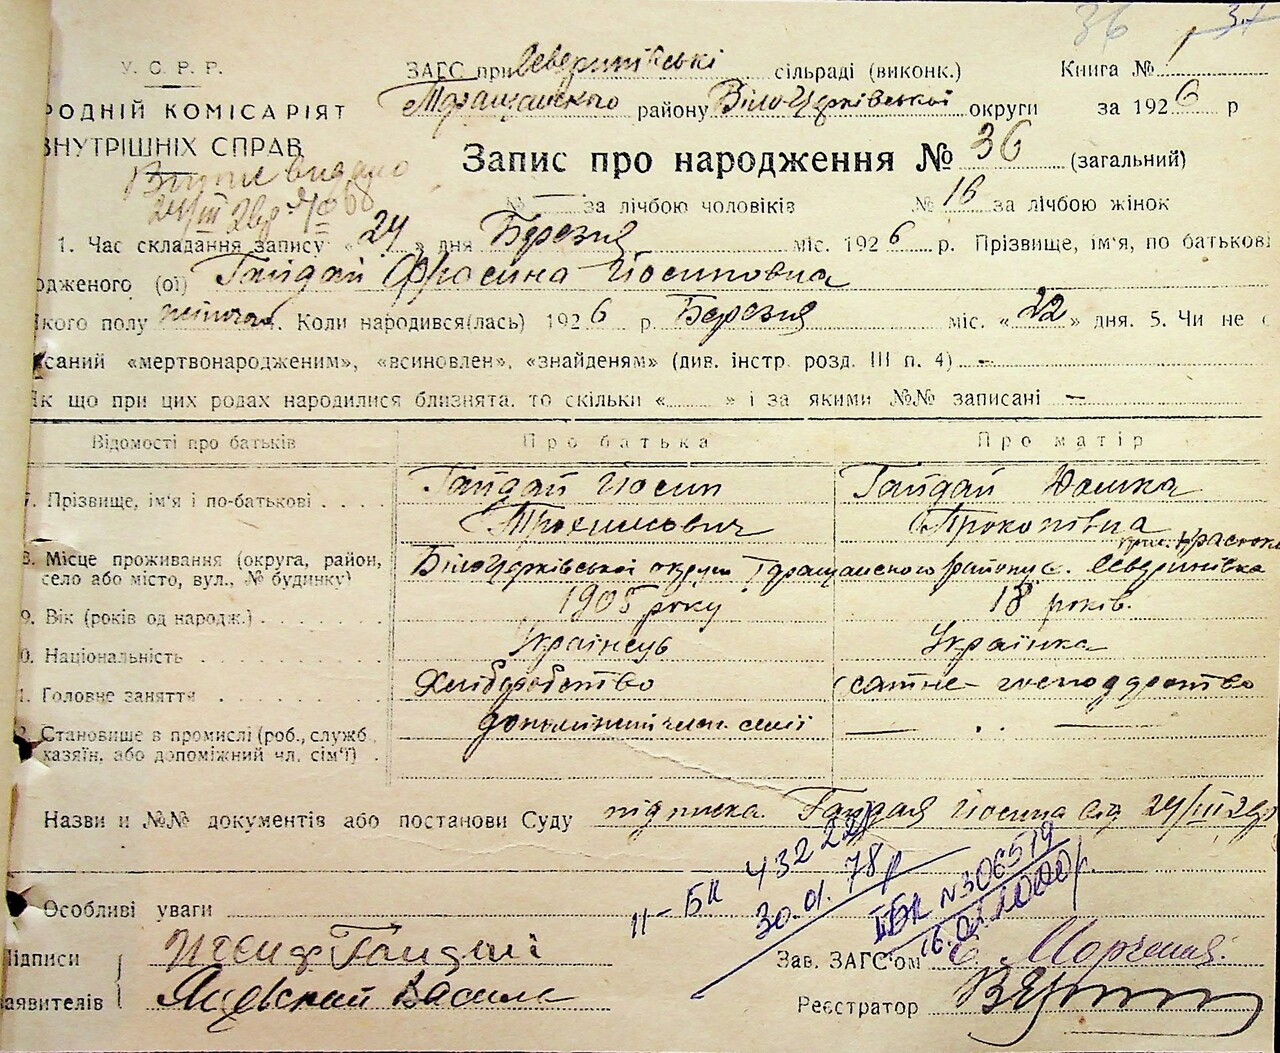 36 37
У. С. Р. Р. ЗАГС при Северинівські сільраді (виконк.) Книга № 1
РОДНІЙ КОМІСАРІЯТ Таращанского району Біло-Церківської округи за 1926 р
ВНУТРІШНІХ СПРАВ
Запис про народження № 36 (загальний)
видано
24/III
№ — за лічбою чоловіків № 16 за лічбою жінок
1. Час складання запису «24» дня Березня міс. 1926 р. Прізвище, ім'я, по батькові
одженого (ої) Гайдай Фросина Йосиповна
якого полу жіночого. Коли народився(лась) 1926 р. Березня міс. «22» дня. 5. Чи не
саний «мертвонародженим», «всиновлен», «знайденям» (див. інстр. розд. III п. 4) —
Як що при цих родах народилися близнята, то скільки « » і за якими №№ записані —
Відомості про батьків Про батька Про матір
7. Прізвище, ім'я і по-батькові Гайдай Йосип Гайдай Домка
Трохимович Прокопівна
8. Місце проживання (округа, район, село або місто, вул., № будинку) Білоцерківської округи Таращанского району с. Северинівка
9. Вік (років од народж.) 1905 року 18 років.
0. Національність Українець Українка
1. Головне заняття Хліборобство хатнє господарство
2. Становище в промислі (роб., служб. допоміжний член семії — . . —
хазяїн, або допоміжний чл. сім'ї)
Назви и №№ документів або постанови Суду підписка Гайдая Йосипа від 24/III 26р
II-БК 43222
30.01.78р
IБК №306519
16.02.2000р
Особливі уваги
Підписи Йосип Гайдай Зав. ЗАГС'ом
заявителів Василь Реєстратор